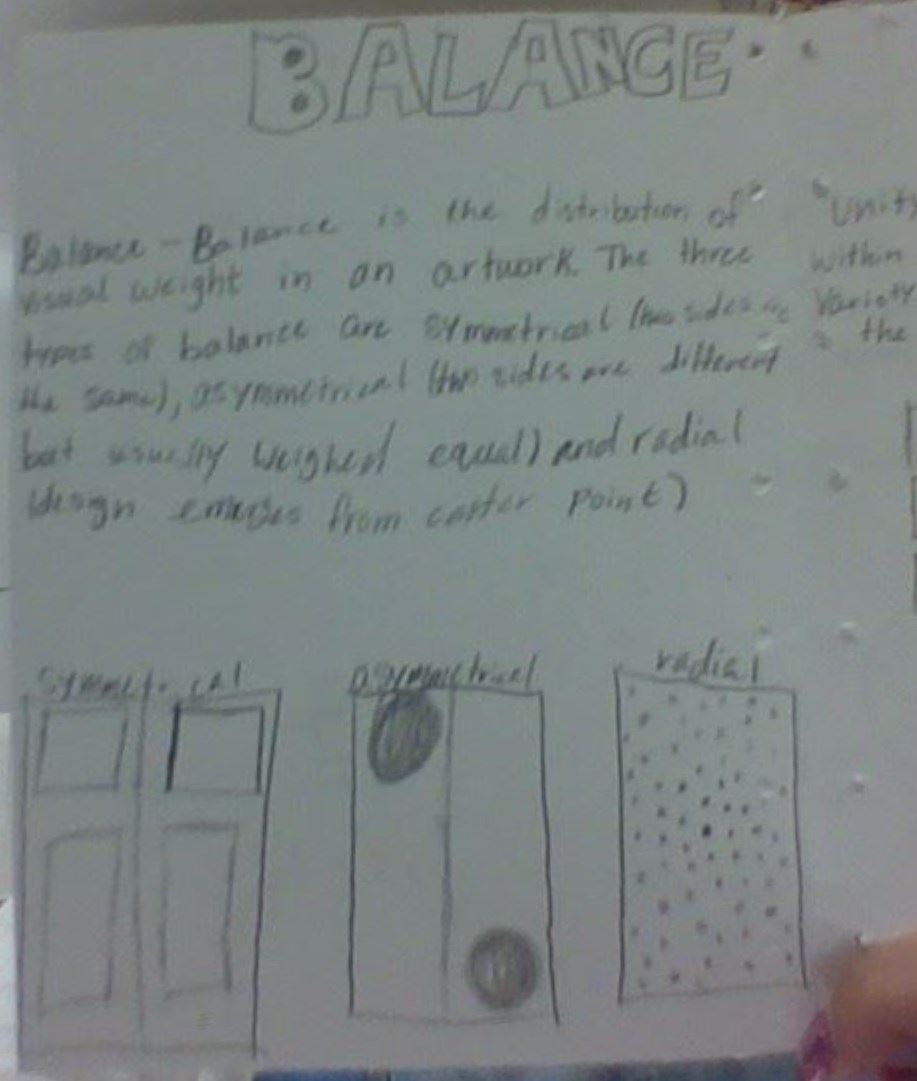 BALANCE
Balance - Balance is the distribution of
visual weight in an artwork. The three
types of balance are symmetrical (two sides
the same), asymmetrical (two sides are different
but usually weighed equal) and radial
(design emerges from center point)
"Unity
within
Variety
the
symmetrical
asymmetrical
radial